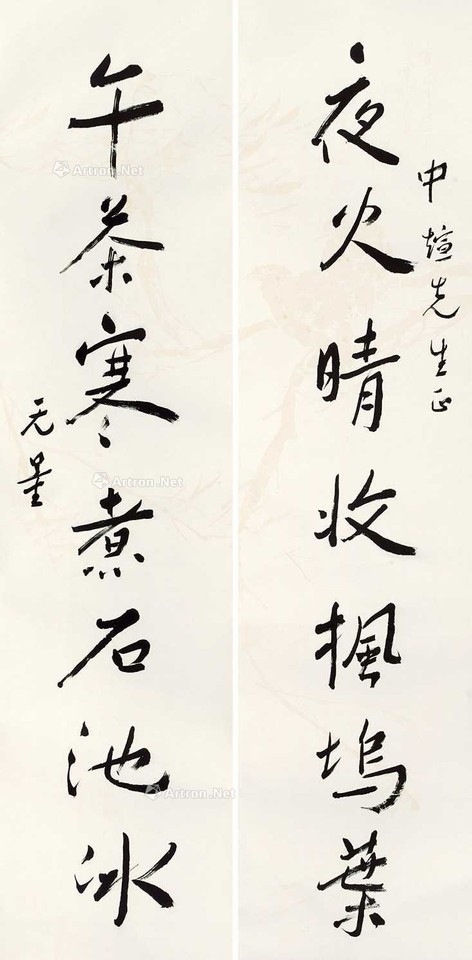 中煊先生正
夜火晴收楓塢葉
午茶寒煮石池冰
无量
Artron.Net
Artron.Net
Artron.Net